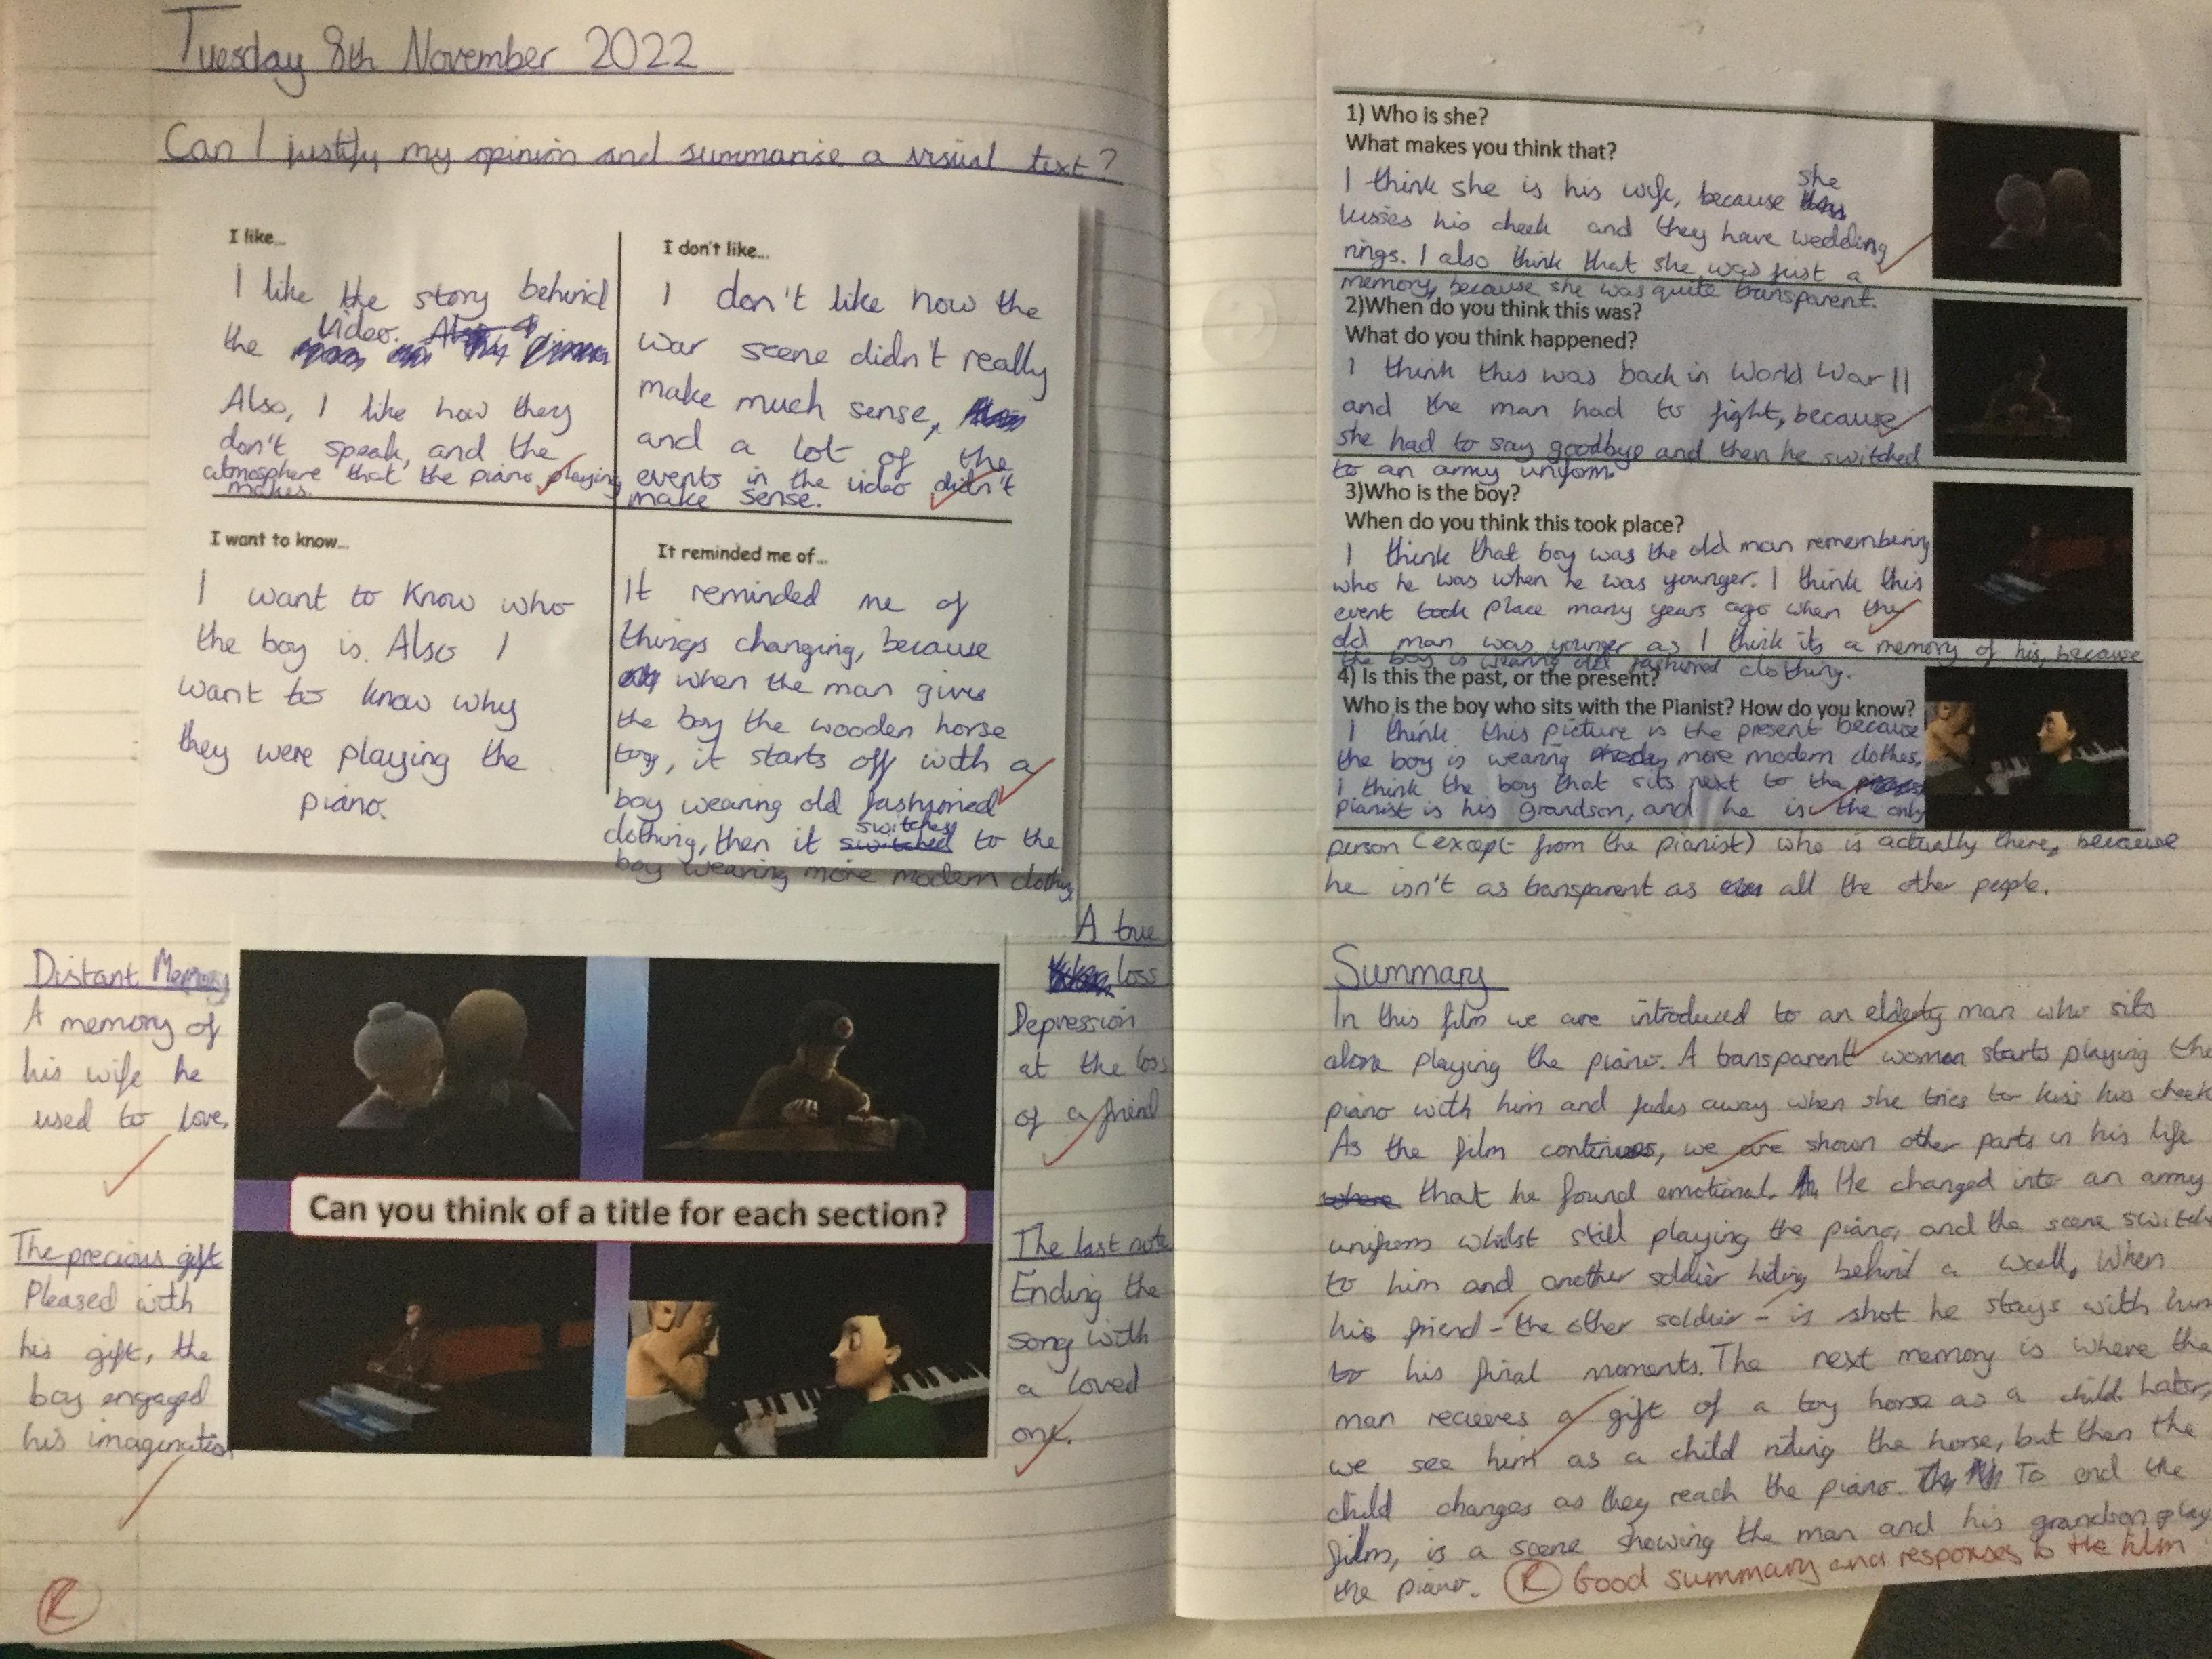 Tuesday 8th November 2022
Can I justify my opinion and summarise a visual text?
I like...
I like the story behind
the video.
Also, I like how they
don't speak, and the
atmosphere that the piano playing
makes.
I don't like...
I don't like how the
war scene didn't really
make much sense,
and a lot of the
events in the video didn't
make sense.
I want to know...
I want to know who
the boy is. Also I
want to know why
they were playing the
piano.
It reminded me of...
It reminded me of
things changing, because
when the man gives
the boy the wooden horse
toy, it starts off with a
boy wearing old fashioned
clothing, then it switches to the
boy wearing more modern clothing
Distant Memory
A memory of
his wife he
used to love.
A true
loss
Depression
at the loss
of a friend
Can you think of a title for each section?
The precious gift
Pleased with
his gift, the
boy engaged
his imagination
The last note
Ending the
song with
a loved
one.
R
1) Who is she?
What makes you think that?
I think she is his wife, because she
kisses his cheek and they have wedding
rings. I also think that she was just a
memory, because she was quite transparent.
2)When do you think this was?
What do you think happened?
I think this was back in World War II
and the man had to fight, because
she had to say goodbye and then he switched
to an army uniform.
3)Who is the boy?
When do you think this took place?
I think that boy was the old man remembering
who he was when he was younger. I think this
event took place many years ago when the
old man was younger as I think its a memory of his, because
the boy is wearing old fashioned clothing.
4) Is this the past, or the present?
Who is the boy who sits with the Pianist? How do you know?
I think this picture is the present because
the boy is wearing more modern clothes.
I think the boy that sits next to the
pianist is his grandson, and he is the only
person (except from the pianist) who is actually there, because
he isn't as transparent as all the other people.
Summary
In this film we are introduced to an elderly man who sits
alone playing the piano. A transparent woman starts playing the
piano with him and fades away when she tries to kiss his cheek
As the film continues, we are shown other parts in his life
where that he found emotional. He changed into an army
uniform whilst still playing the piano, and the scene switch
to him and another soldier hiding behind a wall. When
his friend - the other soldier - is shot he stays with him
to his final moments. The next memory is where the
man recieves a gift of a toy horse as a child. Later,
we see him as a child riding the horse, but then the
child changes as they reach the piano. To end the
film, is a scene showing the man and his grandson play
the piano. R Good summary and responses to the film